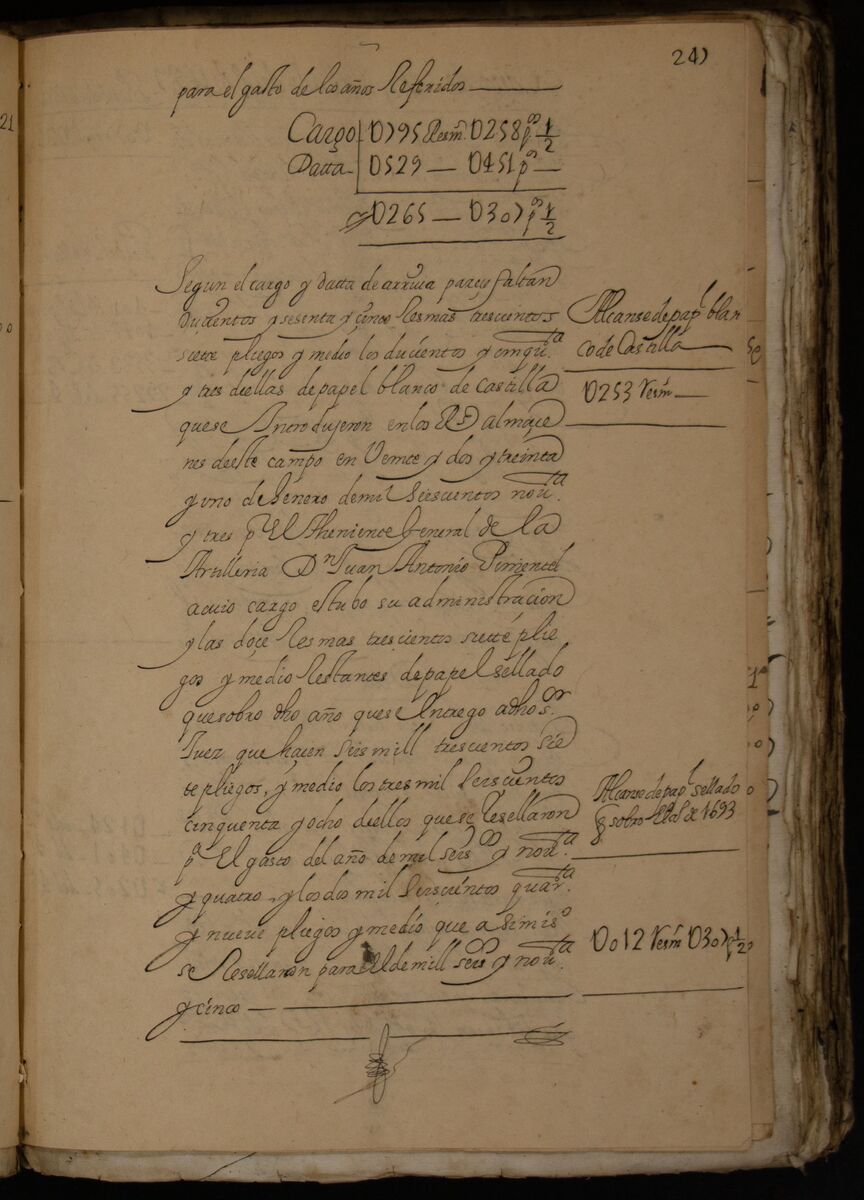 247
para el gasto de los años Referidos
Cargo U795 Resmˢ U258 pˢ ½
Datta U529 — U451 pˢ —
U265 — U307 pˢ ½
Segun el cargo y Datta de arriva pareçe faltan
Ducientos y sesenta y çinco Resmas trescientos
siete pliegos y medio los ducientos y çinqᵗᵃ
y tres dellas de papel blanco de Castilla
que se Introdujeron en los Rˢ almaçe
nes deeste campo en Veinte y dos y treinta
y uno de henero de mil seiscientos novᵗᵃ
y tres pʳ El Theniente General de la
Artilleria Dⁿ Juan Antonio Pimentel
a cuio cargo estubo su administracion
y las doçe Resmas trescientos siette plie
gos y medio Restantes de papel sellado
que sobro dho año que se Entrego a dho Sᵒʳ
Juez que haçen seis mill trescientos sie
te pliegos, y medio los tres mil seiscientos
cinquenta y ocho dellos que se Resellaron
pᵃ El gasto del año de mil seisᵒˢ y novᵗᵃ
y quatro, y los dos mil seiscientos quarᵗᵃ
y nueve pliegos y medio que asimisᵒ
se Resellaron para el de mill seisᵒˢ y novᵗᵃ
y cinco
Alcanse de papˡ blan
co de Castilla
U253 Resmˢ
Alcanse de papˡ sellado
q sobro El de 1693
U012 Resmˢ U307 pˢ ½